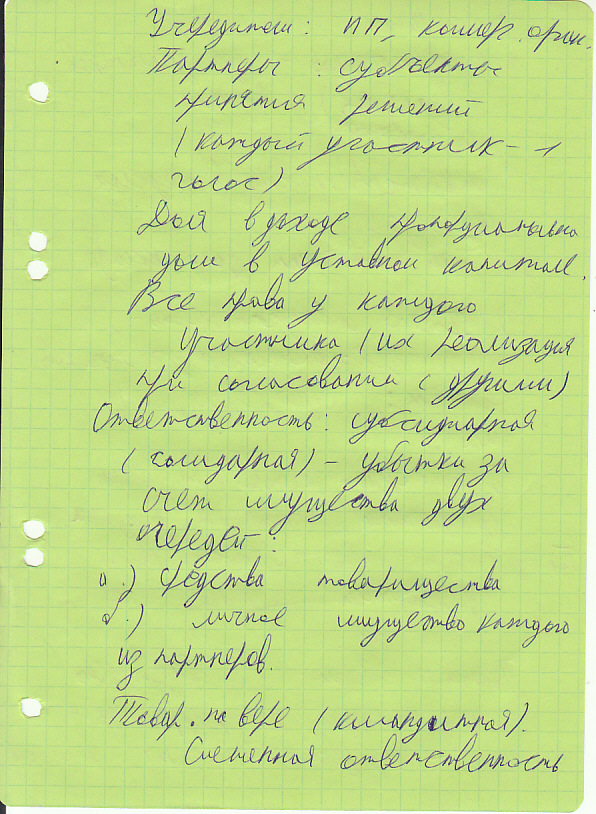 Учередители: ПП, коммер. орган.
Партнеры: субъекты
принятия решений
(каждый участник - 1
голос)
Доля в доходе пропорциональна
доли в уставном капитале.
Все права у каждого
участника (их реализация
при согласовании с другими)
Ответственность: субсидиарная
(солидарная) – убытки за
счет имущества двух
очередей:
а.) средства товарищества
б.) личное имущество каждого
из партнеров.
Товар. на вере (командитная).
Смешенная ответственность